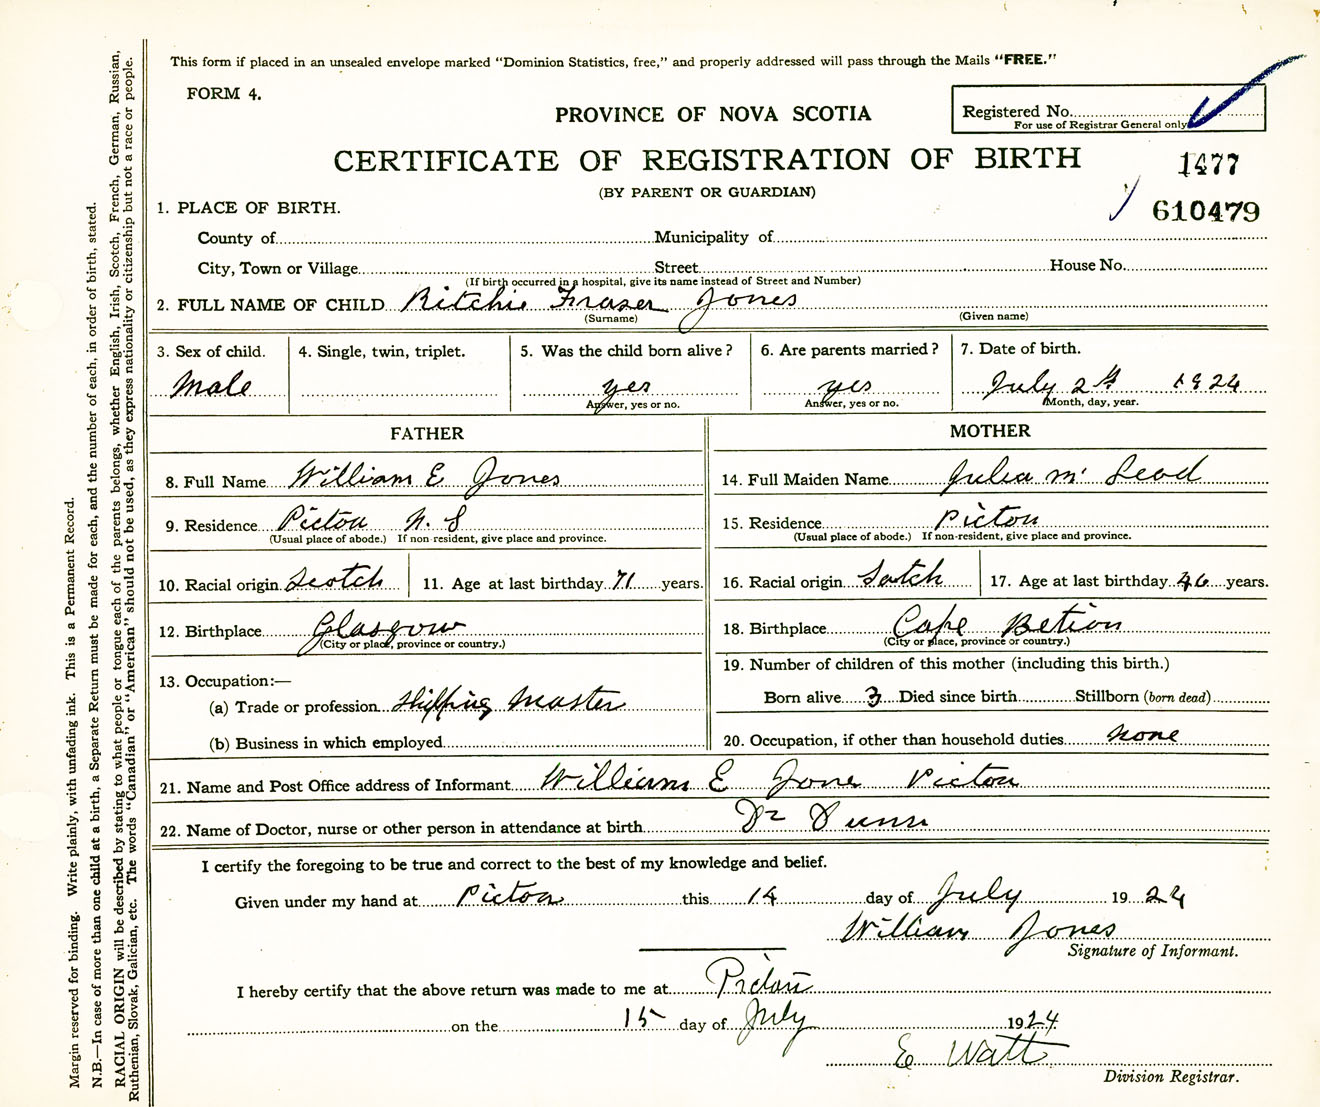 This form if placed in an unsealed envelope marked "Dominion Statistics, free," and properly addressed will pass through the Mails "FREE."
FORM 4.
PROVINCE OF NOVA SCOTIA
Registered No.
For use of Registrar General only
CERTIFICATE OF REGISTRATION OF BIRTH
1477
(BY PARENT OR GUARDIAN)
610479
1. PLACE OF BIRTH.
County of Municipality of
City, Town or Village Street House No.
(If birth occurred in a hospital, give its name instead of Street and Number)
2. FULL NAME OF CHILD Ritchie Fraser Jones
(Surname) (Given name)
3. Sex of child. 4. Single, twin, triplet. 5. Was the child born alive? 6. Are parents married? 7. Date of birth.
Male yes yes July 2th 1924
Answer, yes or no. Answer, yes or no. Month, day, year.
FATHER
8. Full Name William E Jones
9. Residence Pictou N. S
(Usual place of abode.) If non-resident, give place and province.
10. Racial origin Scotch 11. Age at last birthday 71 years.
12. Birthplace Glasgow
(City or place, province or country.)
13. Occupation:—
(a) Trade or profession Shipping Master
(b) Business in which employed
MOTHER
14. Full Maiden Name Julia Mc Leod
15. Residence Pictou
(Usual place of abode.) If non-resident, give place and province.
16. Racial origin Sotch 17. Age at last birthday 46 years.
18. Birthplace Cape Betion
(City or place, province or country.)
19. Number of children of this mother (including this birth.)
Born alive 3 Died since birth Stillborn (born dead)
20. Occupation, if other than household duties none
21. Name and Post Office address of Informant William E Jone Pictou
22. Name of Doctor, nurse or other person in attendance at birth Dr Dunn
I certify the foregoing to be true and correct to the best of my knowledge and belief.
Given under my hand at Pictou this 14 day of July 1924
William Jones
Signature of Informant.
I hereby certify that the above return was made to me at Pictou
on the 15 day of July 1924
E Watt
Division Registrar.
Margin reserved for binding. Write plainly, with unfading ink. This is a Permanent Record.
N.B.—In case of more than one child at a birth, a Separate Return must be made for each, and the number of each, in order of birth, stated.
RACIAL ORIGIN will be described by stating to what people or tongue each of the parents belongs, whether English, Irish, Scotch, French, German, Russian,
Ruthenian, Slovak, Galician, etc. The words "Canadian" or "American" should not be used, as they express nationality or citizenship but not a race or people.